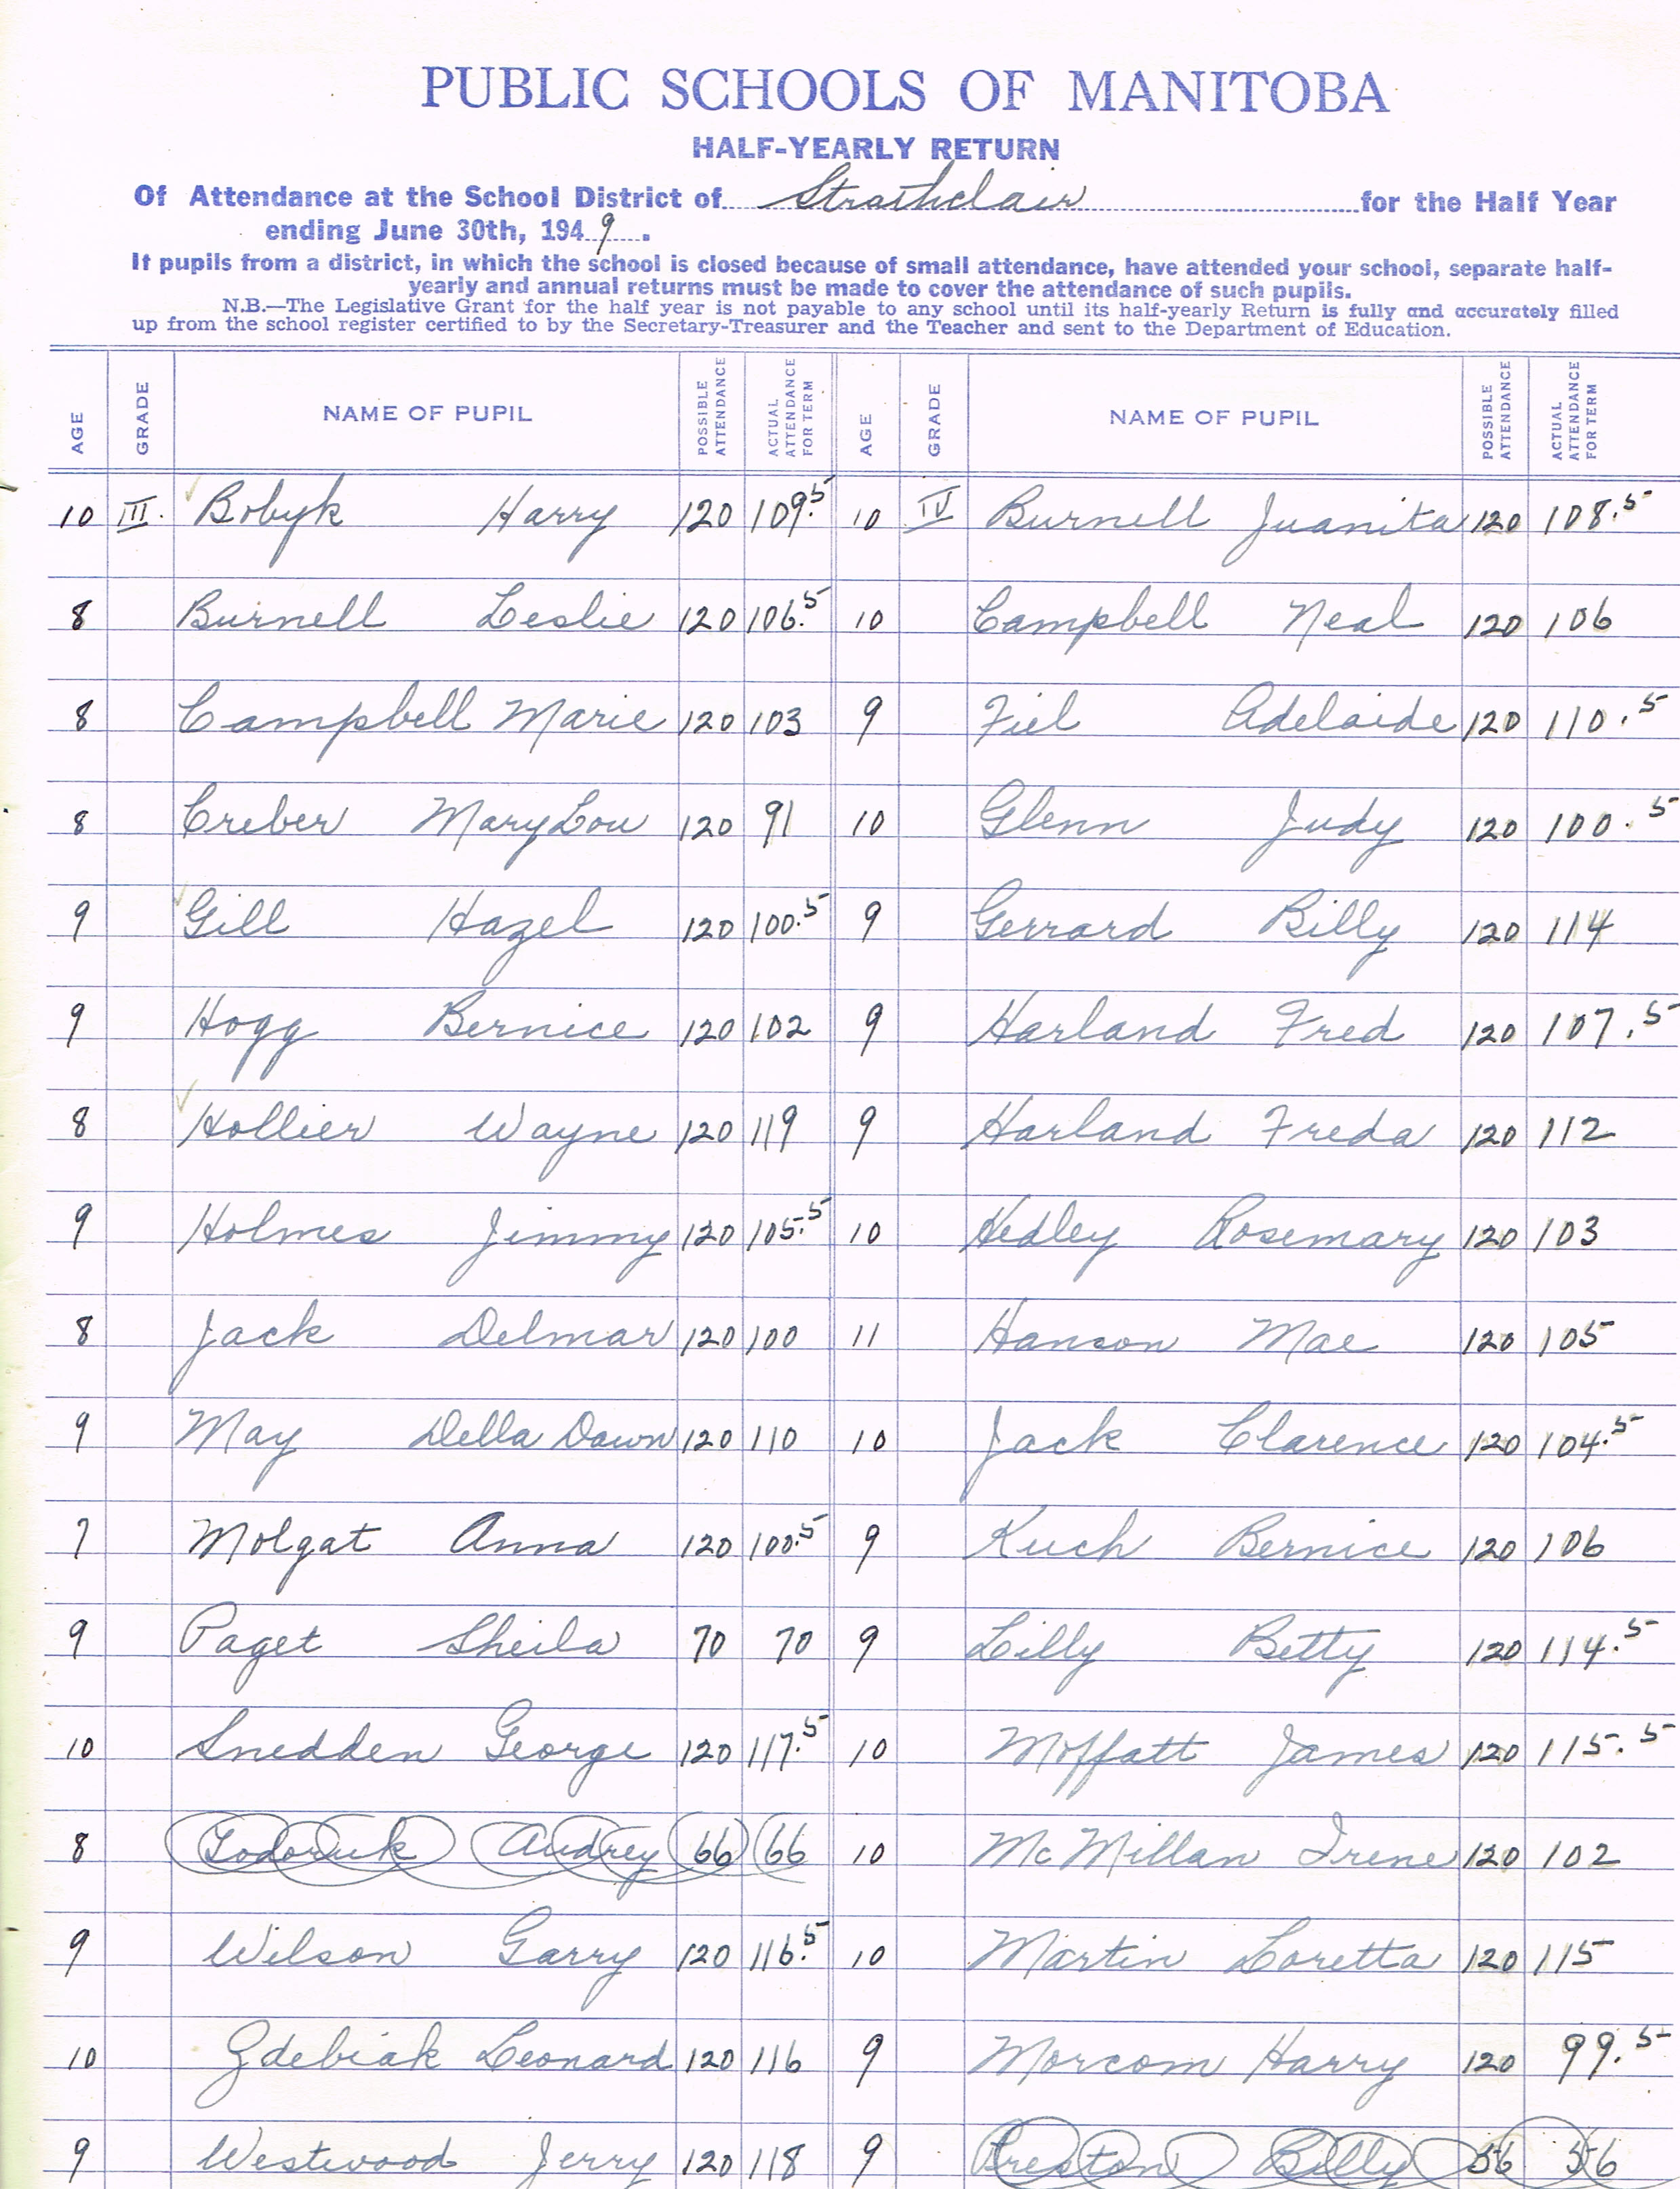 PUBLIC SCHOOLS OF MANITOBA
HALF-YEARLY RETURN
Of Attendance at the School District of Strathclair for the Half Year
ending June 30th, 1949.
If pupils from a district, in which the school is closed because of small attendance, have attended your school, separate half-
yearly and annual returns must be made to cover the attendance of such pupils.
N.B.—The Legislative Grant for the half year is not payable to any school until its half-yearly Return is fully and accurately filled
up from the school register certified to by the Secretary-Treasurer and the Teacher and sent to the Department of Education.
AGE GRADE NAME OF PUPIL POSSIBLE ATTENDANCE ACTUAL ATTENDANCE FOR TERM AGE GRADE NAME OF PUPIL POSSIBLE ATTENDANCE ACTUAL ATTENDANCE FOR TERM
10 III. Bobyk Harry 120 109.5 10 IV Burnell Juanita 120 108.5
8 Burnell Leslie 120 106.5 10 Campbell Neal 120 106
8 Campbell Marie 120 103 9 Fiel Adelaide 120 110.5
8 Creber MaryLou 120 91 10 Glenn Judy 120 100.5
9 Gill Hazel 120 100.5 9 Gerrard Billy 120 114
9 Hogg Bernice 120 102 9 Harland Fred 120 107.5
8 Hollier Wayne 120 119 9 Harland Freda 120 112
9 Holmes Jimmy 120 105.5 10 Hedley Rosemary 120 103
8 Jack Delmar 120 100 11 Hanson Mae 120 105
9 May Della Dawn 120 110 10 Jack Clarence 120 104.5
7 Molgat Anna 120 100.5 9 Kuch Bernice 120 106
9 Paget Sheila 70 70 9 Lilly Betty 120 114.5
10 Snedden George 120 117.5 10 Moffatt James 120 115.5
8 Todoruk Audrey 66 66 10 McMillan Irene 120 102
9 Wilson Garry 120 116.5 10 Martin Loretta 120 115
10 Zdebiak Leonard 120 116 9 Morcom Harry 120 99.5
9 Westwood Jerry 120 118 9 Preston Billy 56 56